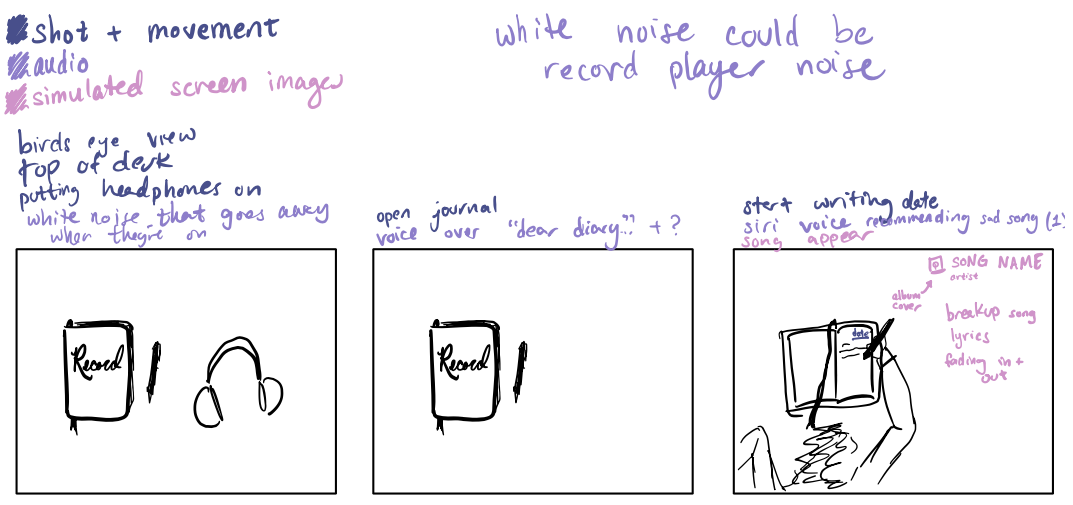 shot + movement
audio
simulated screen images
white noise could be
record player noise
birds eye view
top of desk
putting headphones on
white noise that goes away
when they're on
Record
open journal
voice over "dear diary.." + ?
Record
start writing date
siri voice recommending sad song (1)
song appear
SONG NAME
artist
album
cover
date
breakup song
lyrics
fading in +
out